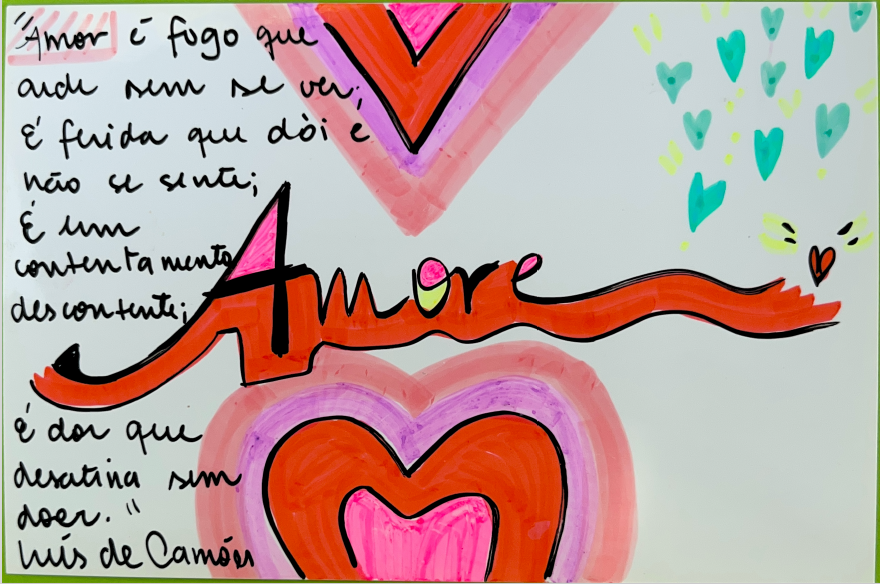 "Amor é fogo que
arde sem se ver;
É ferida que dòi e
não se sente;
É um
contentamento
descontente;
Amore
É dor que
desatina sem
doer."
Luís de Camões